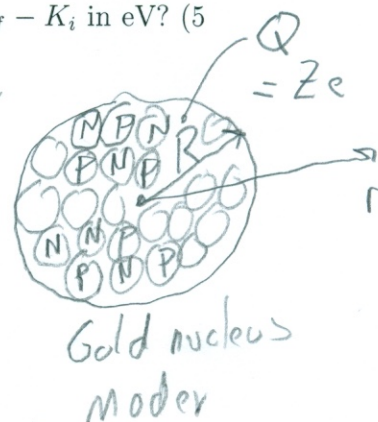 – K_i in eV? (5
Q
= Ze
N P N
R
P N P
r
N N P
P N P
Gold nucleus
Moder